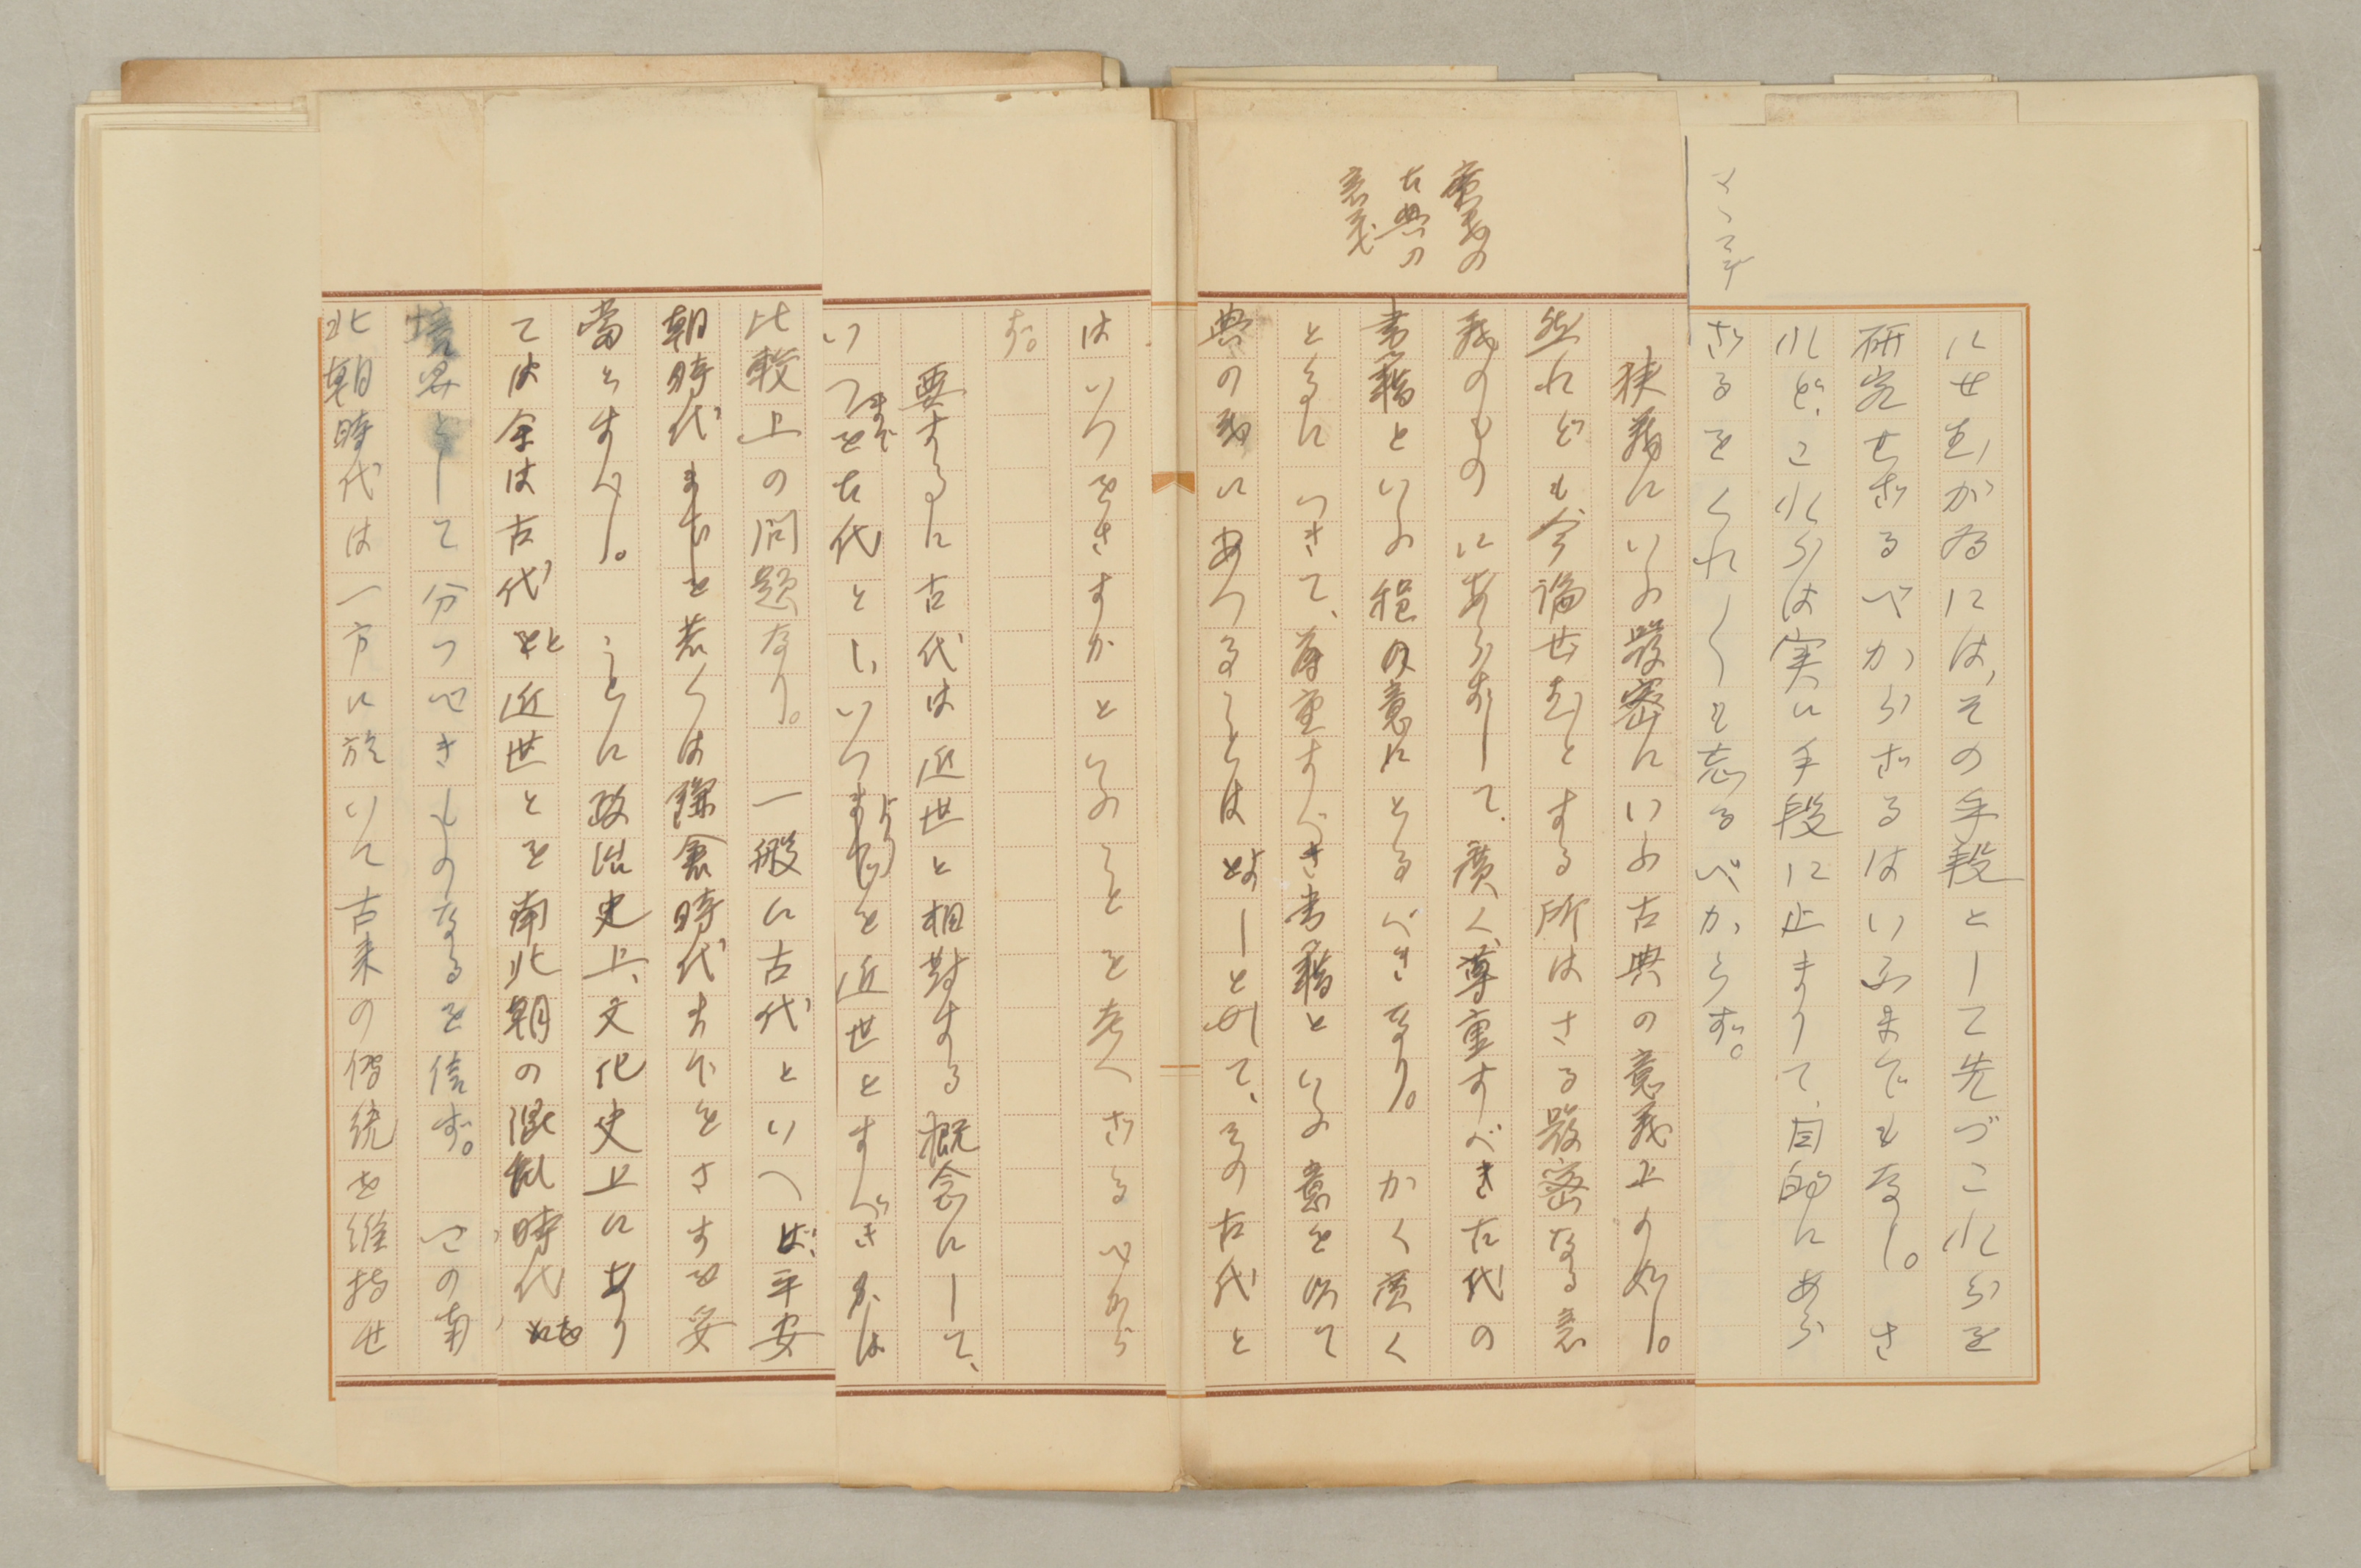 にせむがゐには、その手段として先づこれらを
研究せざるべからざるはいふまでもなし。さ
れど、これらは実に手段に止まりて、目的にあら
ざるをくれ〴〵も忘るべからず。
廣義の
古典の
意義
狭義にいふ嚴密にいふ古典の意義上の如し。
然れども今論せむとする所はさる嚴密なる意
義のものにあらずして、廣く尊重すべき古代の
書籍といふ程の意にとるべきなり。かく廣く
とるにつきて、尊重すべき書籍といふ意を以て
典の義にあつることはよしとして、その古代と
はいつをさすかといふことを考へざるべから
ず。
要するに古代は近世と相對する概念にして、
いつまでを古代としいつよりを近世とすべきかは
比較上の問題なり。一般に古代といへば、平安
朝時代までを若くは鎌倉時代までをさすを妥
當とすべし。ことに政治史上、文化史上にあり
ては余は古代と近世とを南北朝の混乱時代を
境界として分つべきものなるを信ず。この南
北朝時代は一方に於いて古来の傳統を維持せ